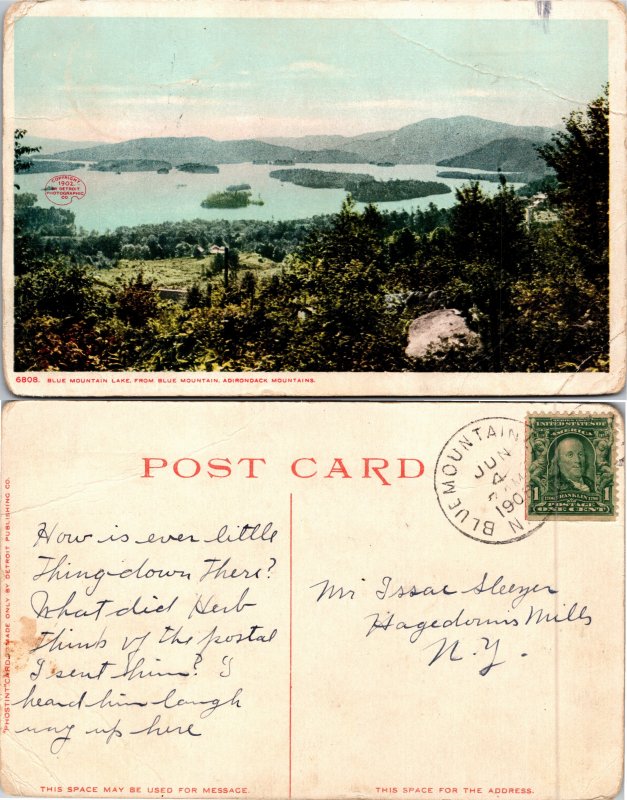 COPYRIGHT
1902
DETROIT
PHOTOGRAPHIC
CO.
6808. BLUE MOUNTAIN LAKE, FROM BLUE MOUNTAIN, ADIRONDACK MOUNTAINS.
POST CARD
BLUE MOUNTAIN
JUN
4
190
UNITED STATES OF
AMERICA
1 FRANKLIN 1
POSTAGE
ONE CENT
"PHOSTINT" CARD MADE ONLY BY DETROIT PUBLISHING CO.
How is ever little
thing down there?
What did Herb
think of the postal
I sent him? I
heard him laugh
way up here
Mr Issac Sleezer
Hagedorns Mills
N.Y.
THIS SPACE MAY BE USED FOR MESSAGE.
THIS SPACE FOR THE ADDRESS.